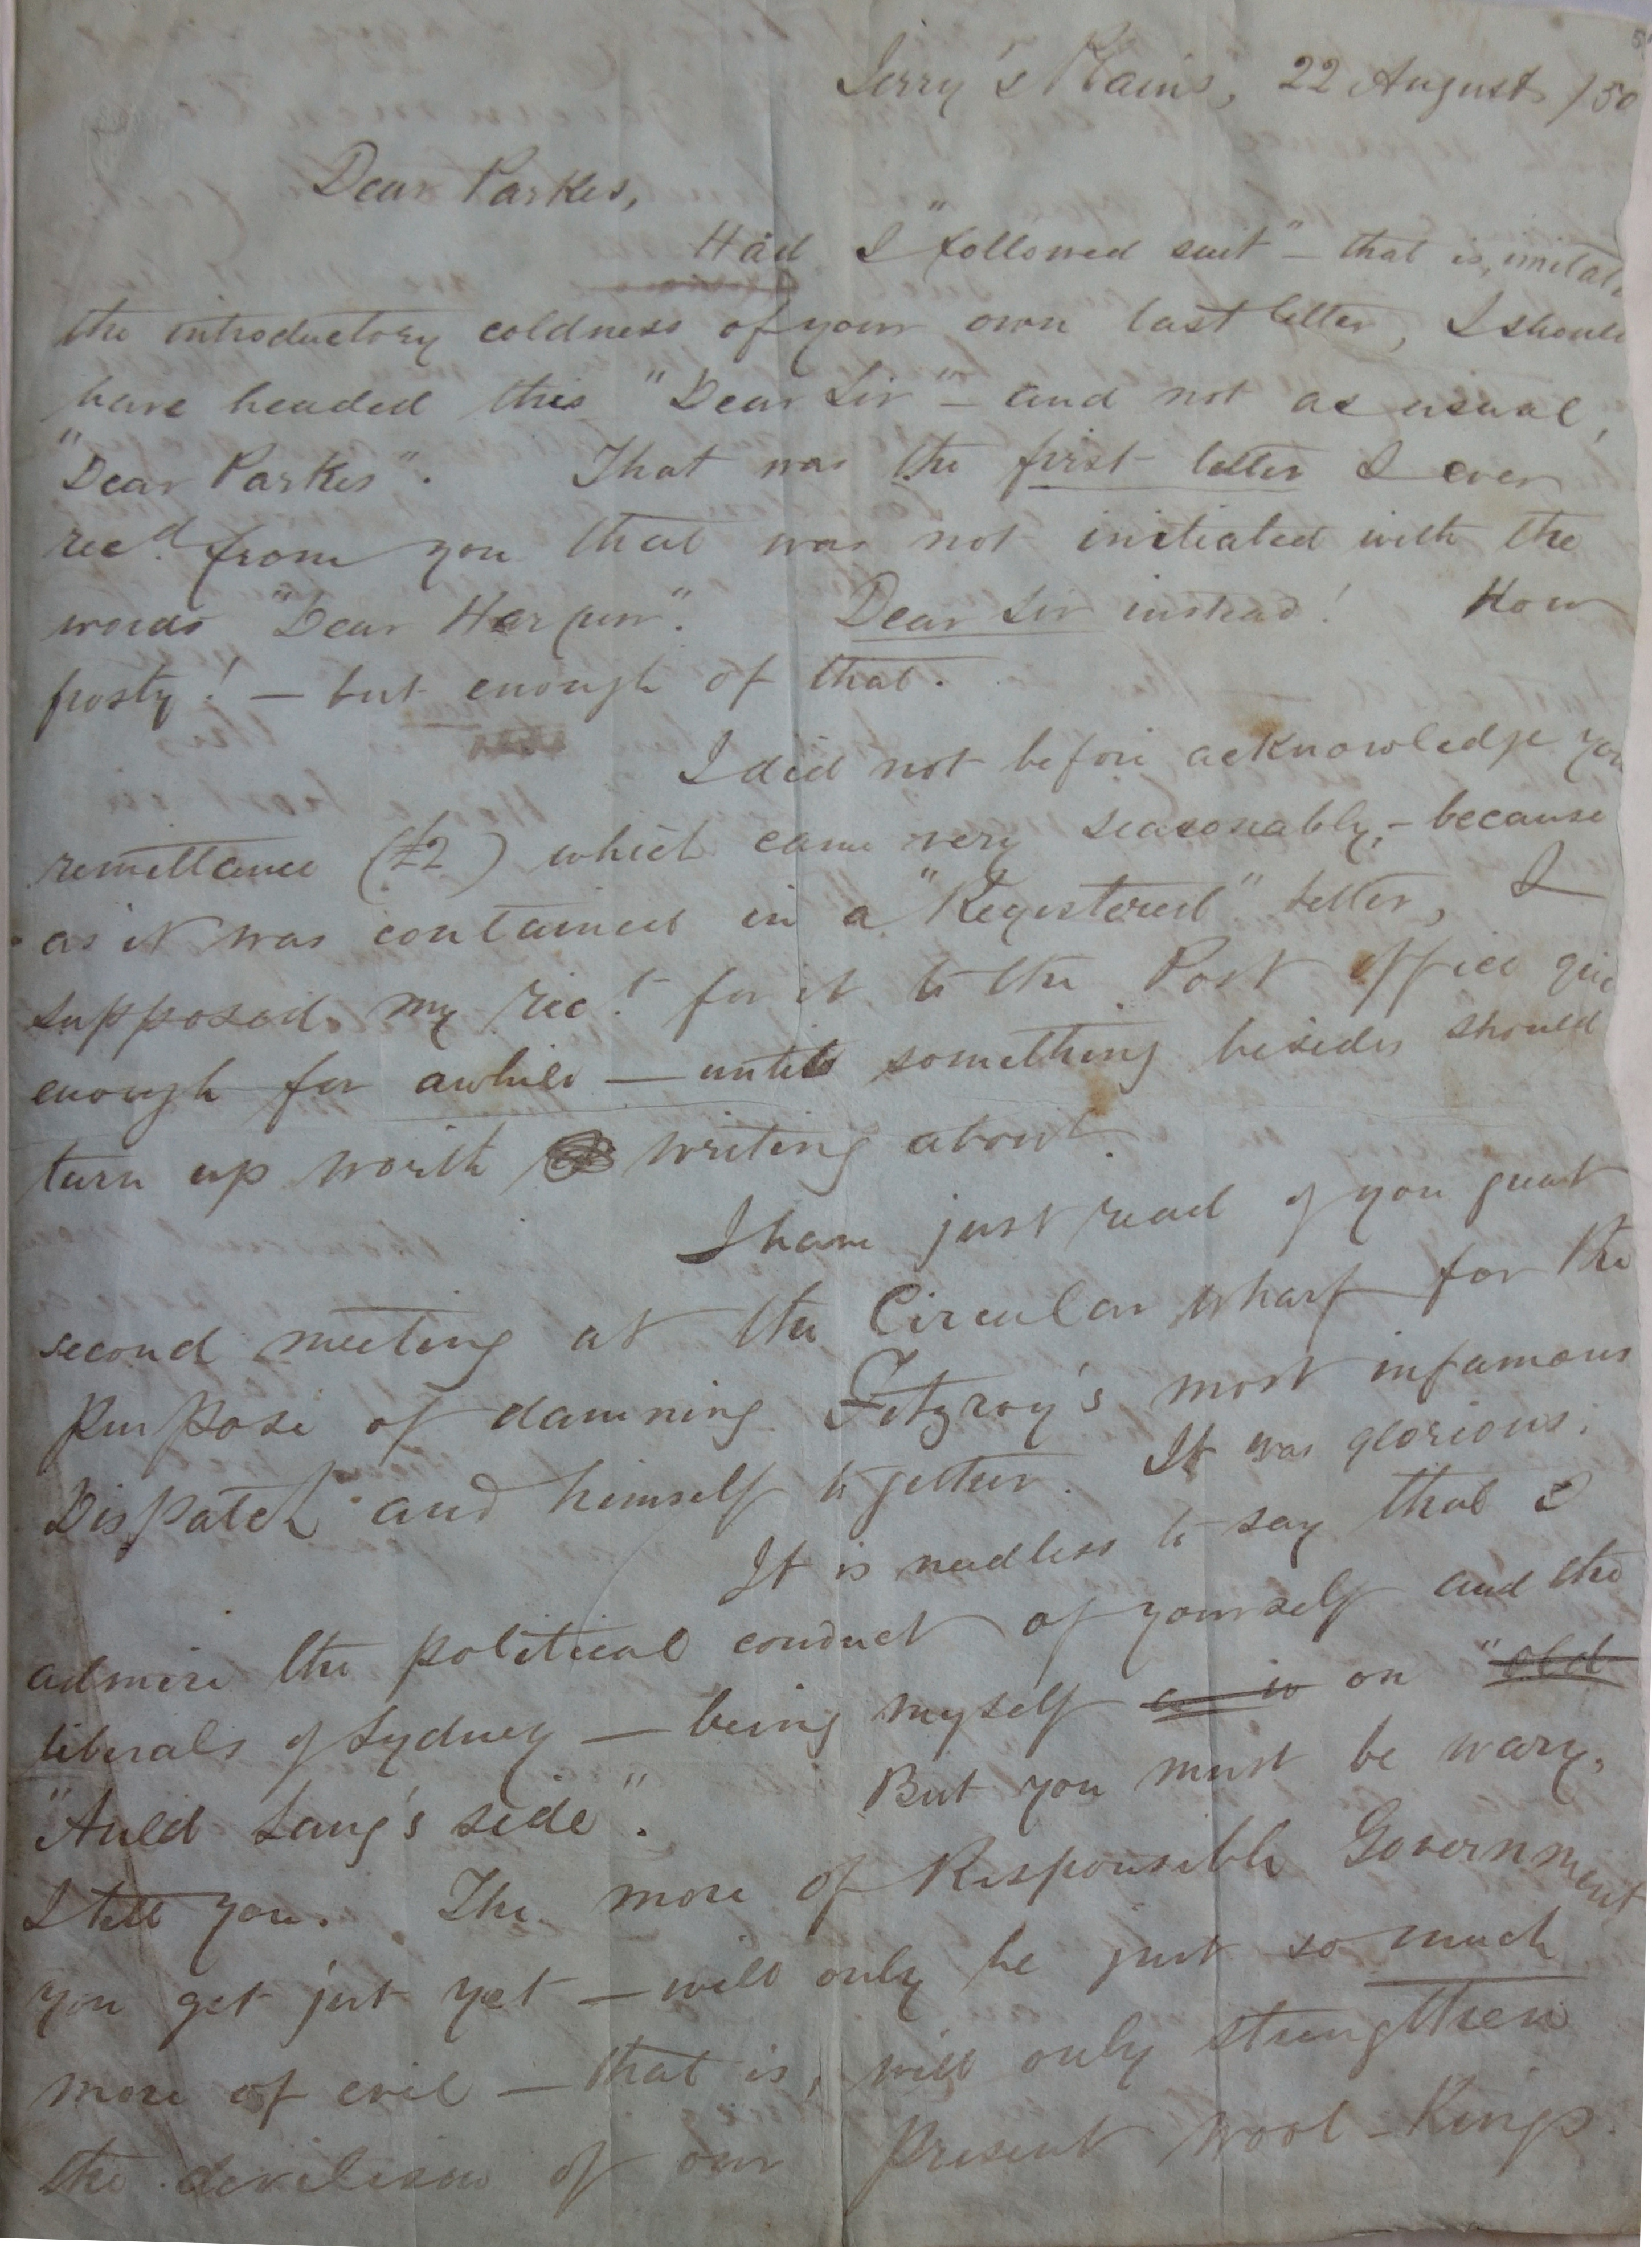 Jerry's Plains, 22 August /50
Dear Parkes,
Had I "followed suit" – that is, imitat
the introductory coldness of your own last letter, I shoul
have headed this "Dear Sir" – and not as usual,
"Dear Parkes". That was the first letter I ever
recd. from you that was not initiated with the
words "Dear Harpur". Dear Sir instead! How
frosty! – but enough of that.
I did not before acknowledge you
remittance (£2) which came very seasonably, – because
as it was contained in a "Registered" letter, I
supposed my rect. for it to the Post Office
enough for awhile — until something besides should
turn up worth writing about.
I have just read of you great
second meeting at the Circular Wharf for the
purpose of damning Fitzroy's most infamous
Dispatch and himself together. It was glorious.
It is needless to say that I
admire the political conduct of yourself and the
liberals of Sydney — being myself on "old
"Auld Lang's side". But you must be wary,
I tell you. The more of Responsible Government
you get just yet — will only be just so much
more of evil — that is, will only strengthen
the devilism of our present Wool-Kings.